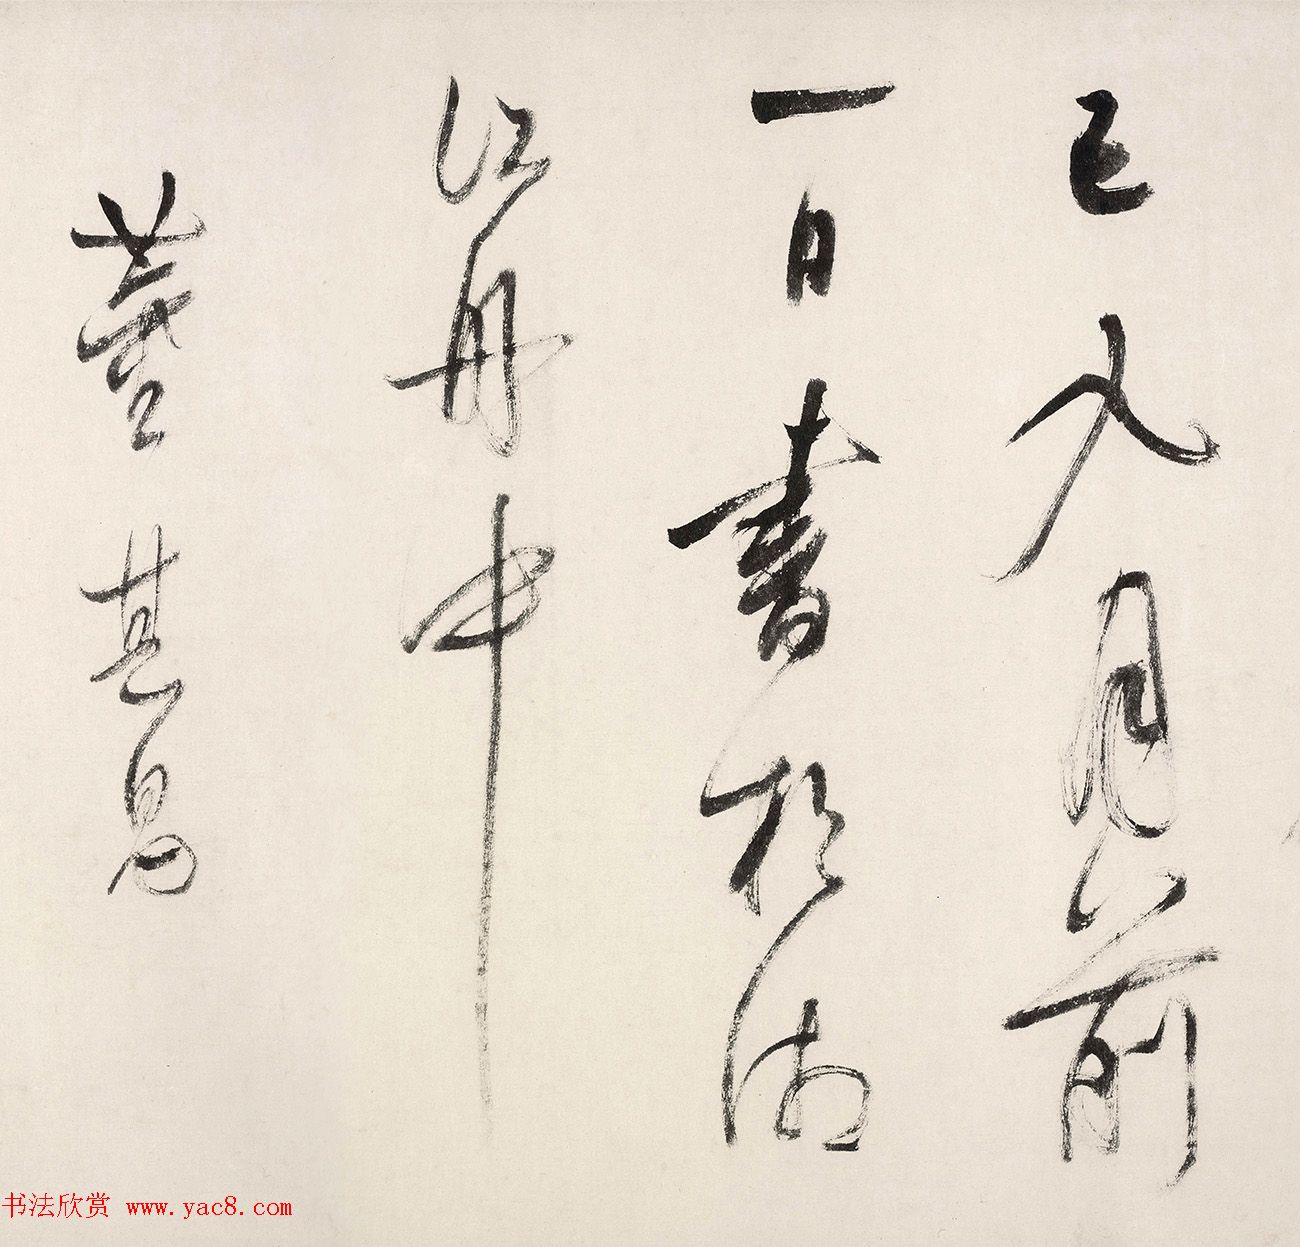 巳九月前
一日書於浙
江舟中
董其昌
书法欣赏 www.yac8.com